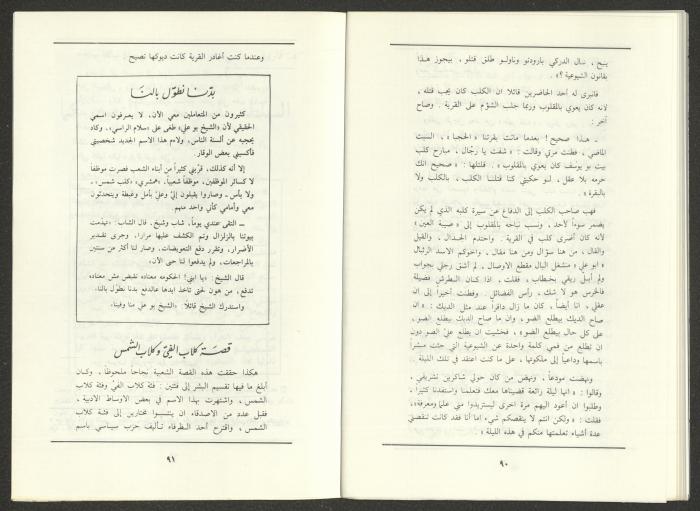 ينبح ، سأل الدركي بارودتو وناولو طلق قتلو ، بيجوز هذا
بقانون الشيوعية ؟» .
فانبرى له أحد الحاضرين قائلا ان الكلب كان يجب قتله ،
لأنه كان يعوي بالمقلوب وربما جلب الشؤم على القرية . وصاح
آخر :
ـ هذا صحيح ! بعدما ماتت بقرتنا «الحجبا» ، السبت
الماضي ، فطنت مرتي وقالت : « شفت يا رجّال ، مبارح كلب
بيت بو يوسف كان يعوي بالمقلوب» . قلتلها : « صحيح انك
حرمه بلا عقل ، لو حكيتي كنا قتلنا الكلب ، بالكلب ولا
بالبقرة » .
فهب صاحب الكلب إلى الدفاع عن سيرة كلبه الذي لم يكن
يضمر سوءاً لأحد ، ونسب نباحه بالمقلوب إلى « صيبة العين »
لأنه كان أضرى كلب في القرية . واحتدم الجدال ، والقيل
والقال ، من هنا سؤال ومن هنا مقال ، واخوكم الاسد الرئبال
« ابو علي » منشغل البال مقطع الاوصال ، لم أشق رجلي بجواب
ولم أبلل ريقي بخطاب ، فقلت ، اذا كان البطرش فضيلة
فالخرس هو لا شك ، رأس الفضائل . وفطنت أخيراً إلى ان
عقلي ، انا أيضاً ، كان ما زال دافراً عند مثل الديك : « ان
صاح الديك بيطلع الضو ، وان ما صاح الديك بيطلع الضو ،
على كل حال بيطلع الضو » ، فخشيت ان يطلع عليّ الضو دون
ان يطلع من فمي كلمة واحدة عن الشيوعية التي جئت مبشراً
باسمها وداعياً إلى ملكوتها ، على ما كنت أعتقد في تلك الليلة .
ونهضت مودعاً ، ونهض من كان حولي شاكرين تشريفي ،
وقالوا : « انها ليلة رائعة قضيناها معك فتعلمنا واستفدنا كثيراً ،
وطلبوا ان أعود اليهم مرة اخرى ليستزيدوا مني علما ومعرفة،
فقلت : « ولكن انتم لا ينقصكم شيء اما أنا فقد كانت تنقصني
عدة أشياء تعلمتها منكم في هذه الليلة »
٩٠
وعندما كنت أغادر القرية كانت ديوكها تصيح
بدّنا نطوّل بالنا
كثيرون من المتعاملين معي الآن، لا يعرفون اسمي
الحقيقي لأن «الشيخ بو علي» طغى على «سلام الراسي»، وكاد
يحجبه عن ألسنة الناس، ولاءم هذا الاسم الجديد شخصيتي
فأكسبني بعض الوقار.
إلا أنه كذلك، قرّبني كثيراً من أبناء الشعب فصرت موظفاً
لا كسائر الموظفين، موظفاً شعبياً، «همشري» «كلب شمس»،
ولا بأس ـ وصاروا يقبلون إليّ وعليّ بأمل وغبطة ويتحدثون
معي وأمامي كأني واحد منهم.
ــ التقى عندي يوماً، شاب وشيخ. قال الشاب: «تهدمت
بيوتنا بالزلزال وتم الكشف عليها مراراً، وجرى تقدير
الأضرار، وتقرر دفع التعويضات، وصار لنا أكثر من سنتين
بالمراجعات، ولم يدفعوا لنا حتى الآن».
قال الشيخ: «يا ابني! الحكومه معتاده تقبض مش معتاده
تدفع، من هون لحتى تاخد ايدها عالدفع بدنا نطوّل بالنا.
واستدرك الشيخ قائلاً: «الشيخ بو علي منا وفينا».
قصة كلاب الفيّ وكلاب الشمس
هكذا حققت هذه القصة الشعبية نجاحا ملحوظا ، وكان
أبلغ ما فيها تقسيم البشر إلى فئتين : فئة كلاب الفيّ وفئة كلاب
الشمس ، واشتهرت بهذا الاسم في بعض الاوساط الادبية ،
فقبل عدد من الاصدقاء ان ينتسبوا مختارين إلى فئة كلاب
الشمس ، واقترح أحد الظرفاء تأليف حزب سياسي باسم
٩١